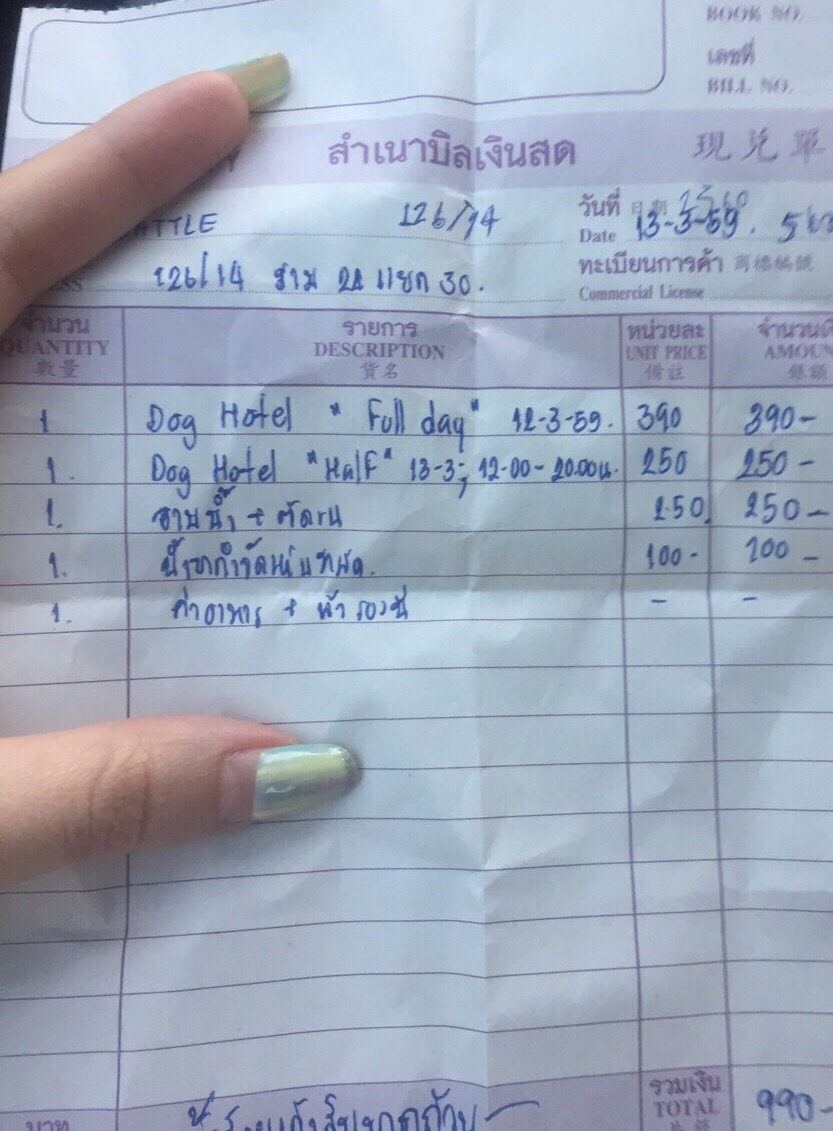 BOOK NO.
เลขที่
BILL NO.
สำเนาบิลเงินสด 現兑單
126/14
วันที่ 日期
Date 13-3-59.
126/14 ราม 24 แยก 30.
ทะเบียนการค้า 商標編號
Commercial License
จำนวน รายการ หน่วยละ
QUANTITY DESCRIPTION UNIT PRICE
數量 貨名 備註 銀額
1 Dog Hotel "Full day" 12-3-59. 390 390-
1. Dog Hotel "Half" 13-3; 12.00-20.00น. 250 250-
1. อาบน้ำ + ตัดขน 250. 250-
1. น้ำยากำจัดเห็บหมัด. 100- 100-
1. ค่าอาหาร + ผ้ารองฉี่ - -
รวมเงิน
บาท TOTAL 990-